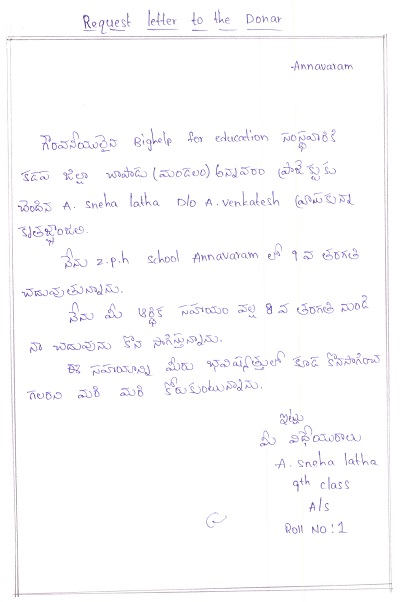 Request letter to the Donar
-Annavaram
గౌరవనీయులైన Bighelp for education సంస్థవారికి
కడప జిల్లా చాపాడు (మండలం) అన్నవరం ప్రాజెక్టుకు
చెందిన A. sneha latha D/o A. venkatesh వ్రాసుకున్న
కృతజ్ఞతాంజలి.
నేను z.p.h school Annavaram లో 9 వ తరగతి
చదువుతున్నాను.
నేను మీ ఆర్థిక సహాయం వల్ల 8 వ తరగతి నుండి
నా చదువును కొన సాగిస్తున్నాను.
ఈ సహాయాన్ని మీరు భవిష్యత్తులో కూడ కొనసాగించ
గలరని మరి మరి కోరుకుంటున్నాను.
ఇట్లు
మీ విధేయురాలు
A. sneha latha
9th class
A/s
Roll No : 1